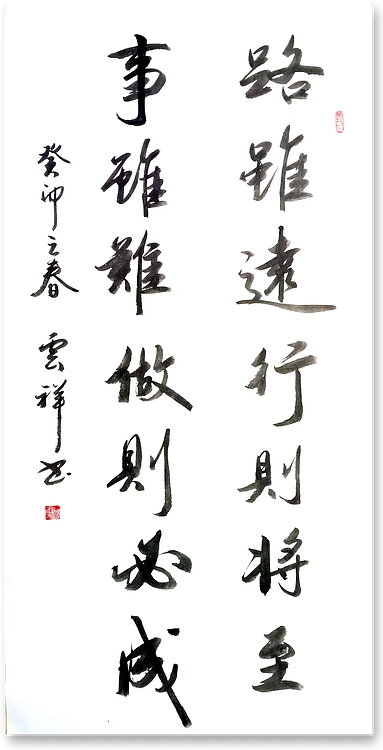 路雖遠行則將至
事雖難做則必成
癸卯之春 雲祥书